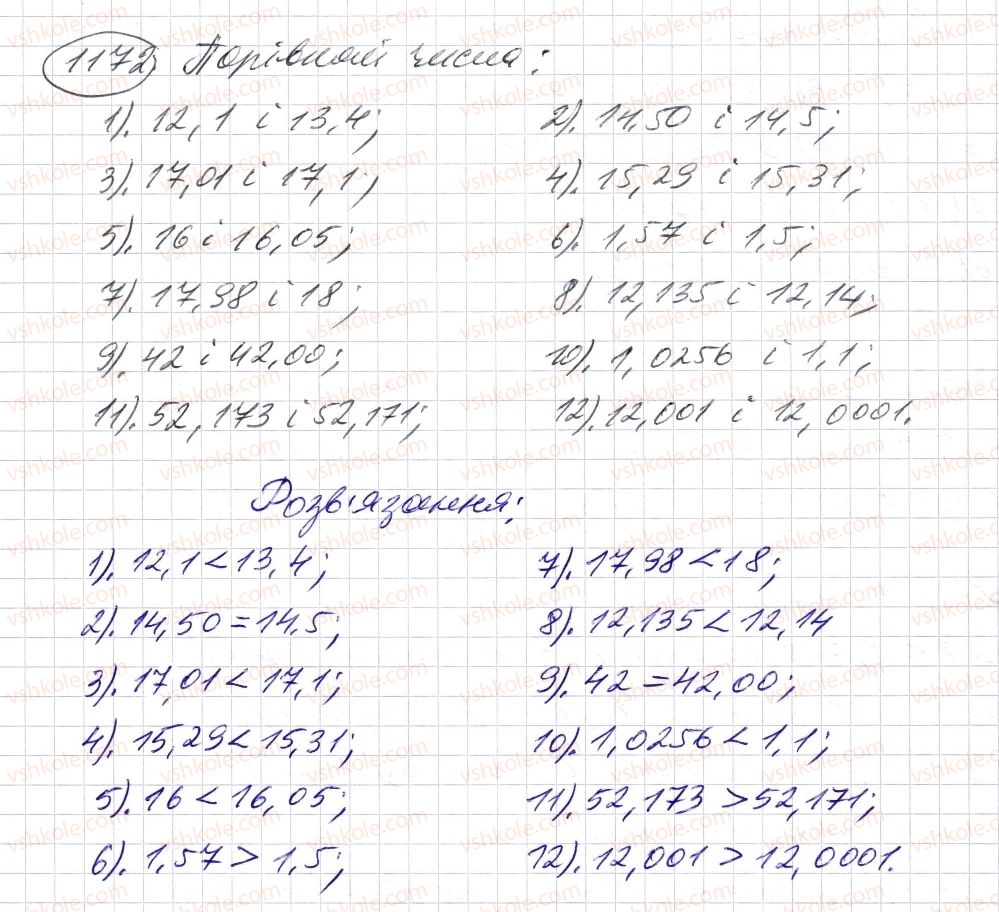 1172 Порівняй числа:
1). 12,1 і 13,4; 2). 14,50 і 14,5;
3). 17,01 і 17,1; 4). 15,29 і 15,31;
5). 16 і 16,05; 6). 1,57 і 1,5;
7). 17,98 і 18; 8). 12,135 і 12,14;
9). 42 і 42,00; 10). 1,0256 і 1,1;
11). 52,173 і 52,171; 12). 12,001 і 12,0001.
Розв'язання:
1). 12,1 < 13,4;
2). 14,50 = 14.5;
3). 17,01 < 17,1;
4). 15,29 < 15,31;
5). 16 < 16,05;
6). 1,57 > 1,5;
7). 17,98 < 18;
8). 12,135 < 12,14
9). 42 = 42,00;
10). 1,0256 < 1,1;
11). 52,173 > 52,171;
12). 12,001 > 12,0001.